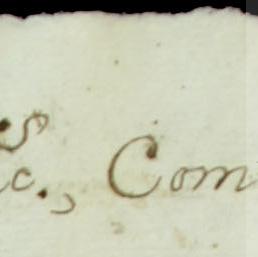 c., Com